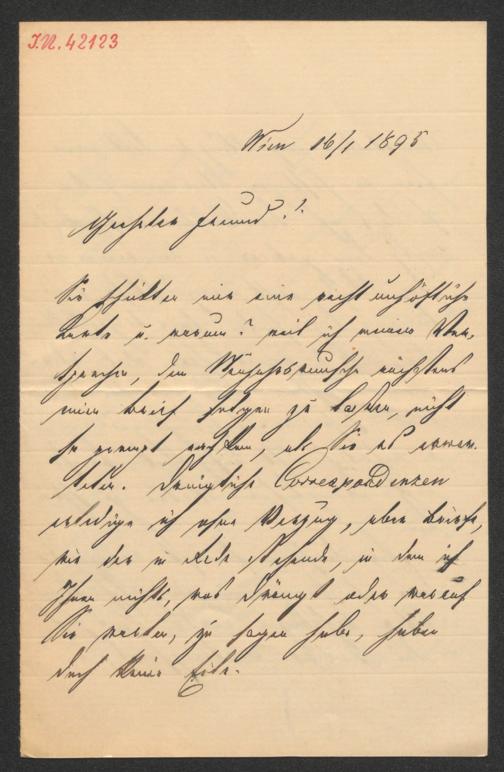 I.N. 42123
Wien 16/1 1895
Geehrter Freund!
Sie schickten mir eine recht unhöfliche
Karte u. warum? weil ich meinem Ver-
sprechen, dem Neujahrswunsche nächstens
einen Brief folgen zu lassen, nicht
so prompt nachkam, als Sie es erwar-
teten. Dringliche Correspondenzen
erledige ich ohne Verzug, aber Briefe,
wie der in Rede stehende, in dem ich
Ihnen nichts, was drängt oder worauf
Sie warten, zu sagen habe, haben
doch keine Eile.